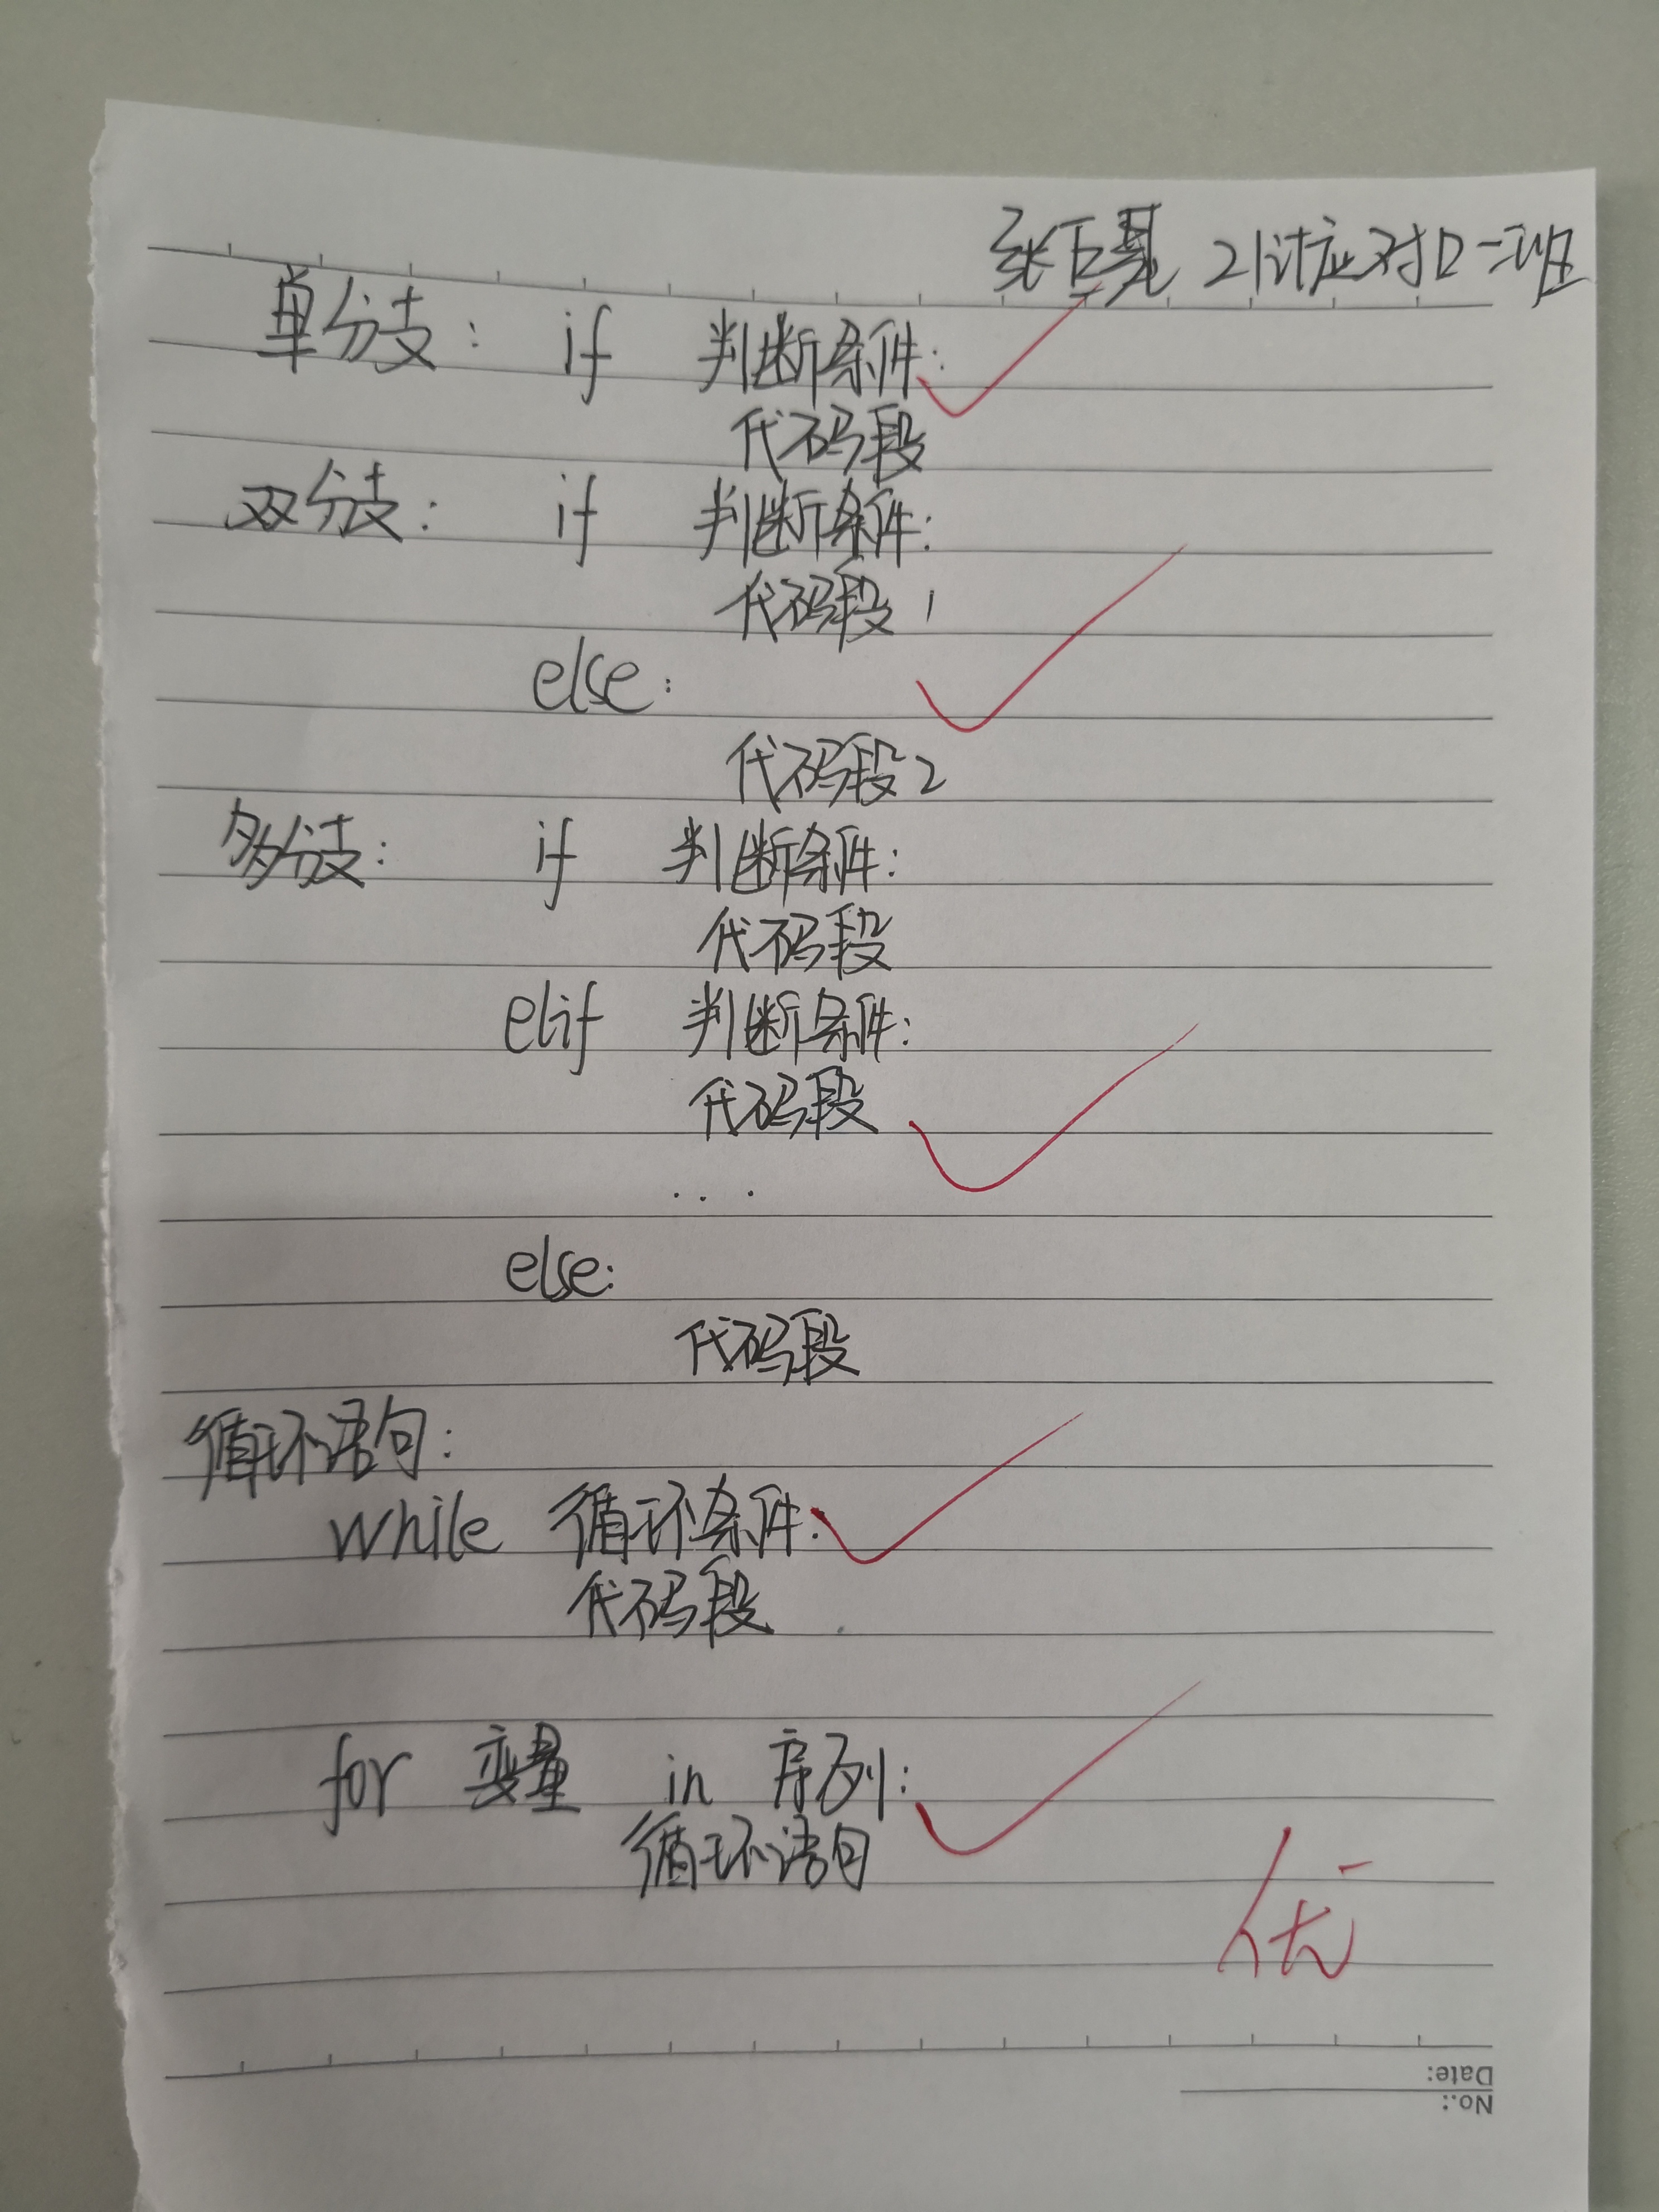 张巨晃 21计应对口一班
单分支: if 判断条件:
代码段
双分支: if 判断条件:
代码段1
else:
代码段2
多分支: if 判断条件:
代码段
elif 判断条件:
代码段
...
else:
代码段
循环语句:
while 循环条件:
代码段
for 变量 in 序列:
循环语句
优
Date:
No.: